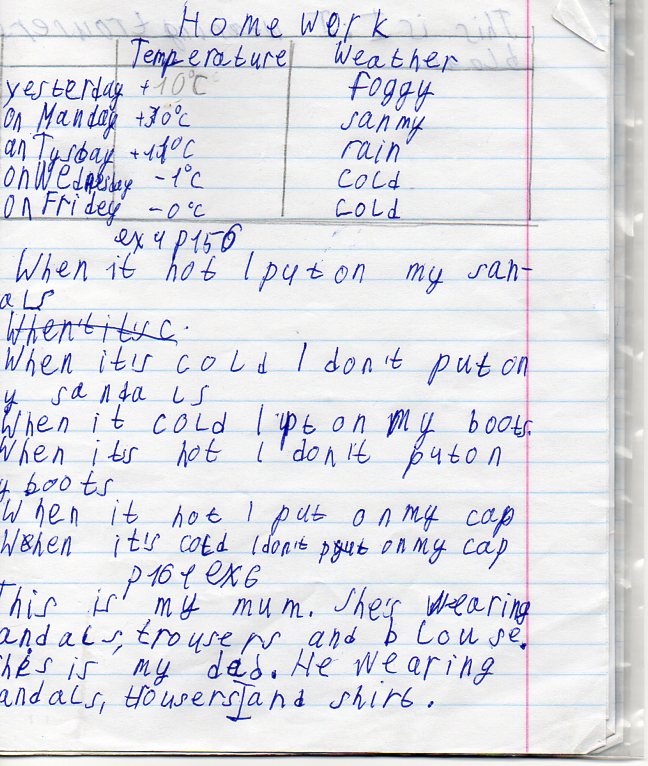 Home work
Temperature Weather
yesterday +10°C foggy
on Manday +10°C sanmy
an Tysday +11°C rain
on Wednesday -1°C cold
on Fridey -0°C cold
ex 4 p156
When it hot I put on my san-
als
When't its c.
When it's cold I don't put on
y sandals
When it cold I put on my boots.
When its hot I don't put on
y boots
When it hot I put on my cap
When it's cold I don't put on my cap
p161 ex6
This is my mum. She's wearing
andals, trousers and blouse.
hes is my dad. He wearing
andals, tousers and shirt.